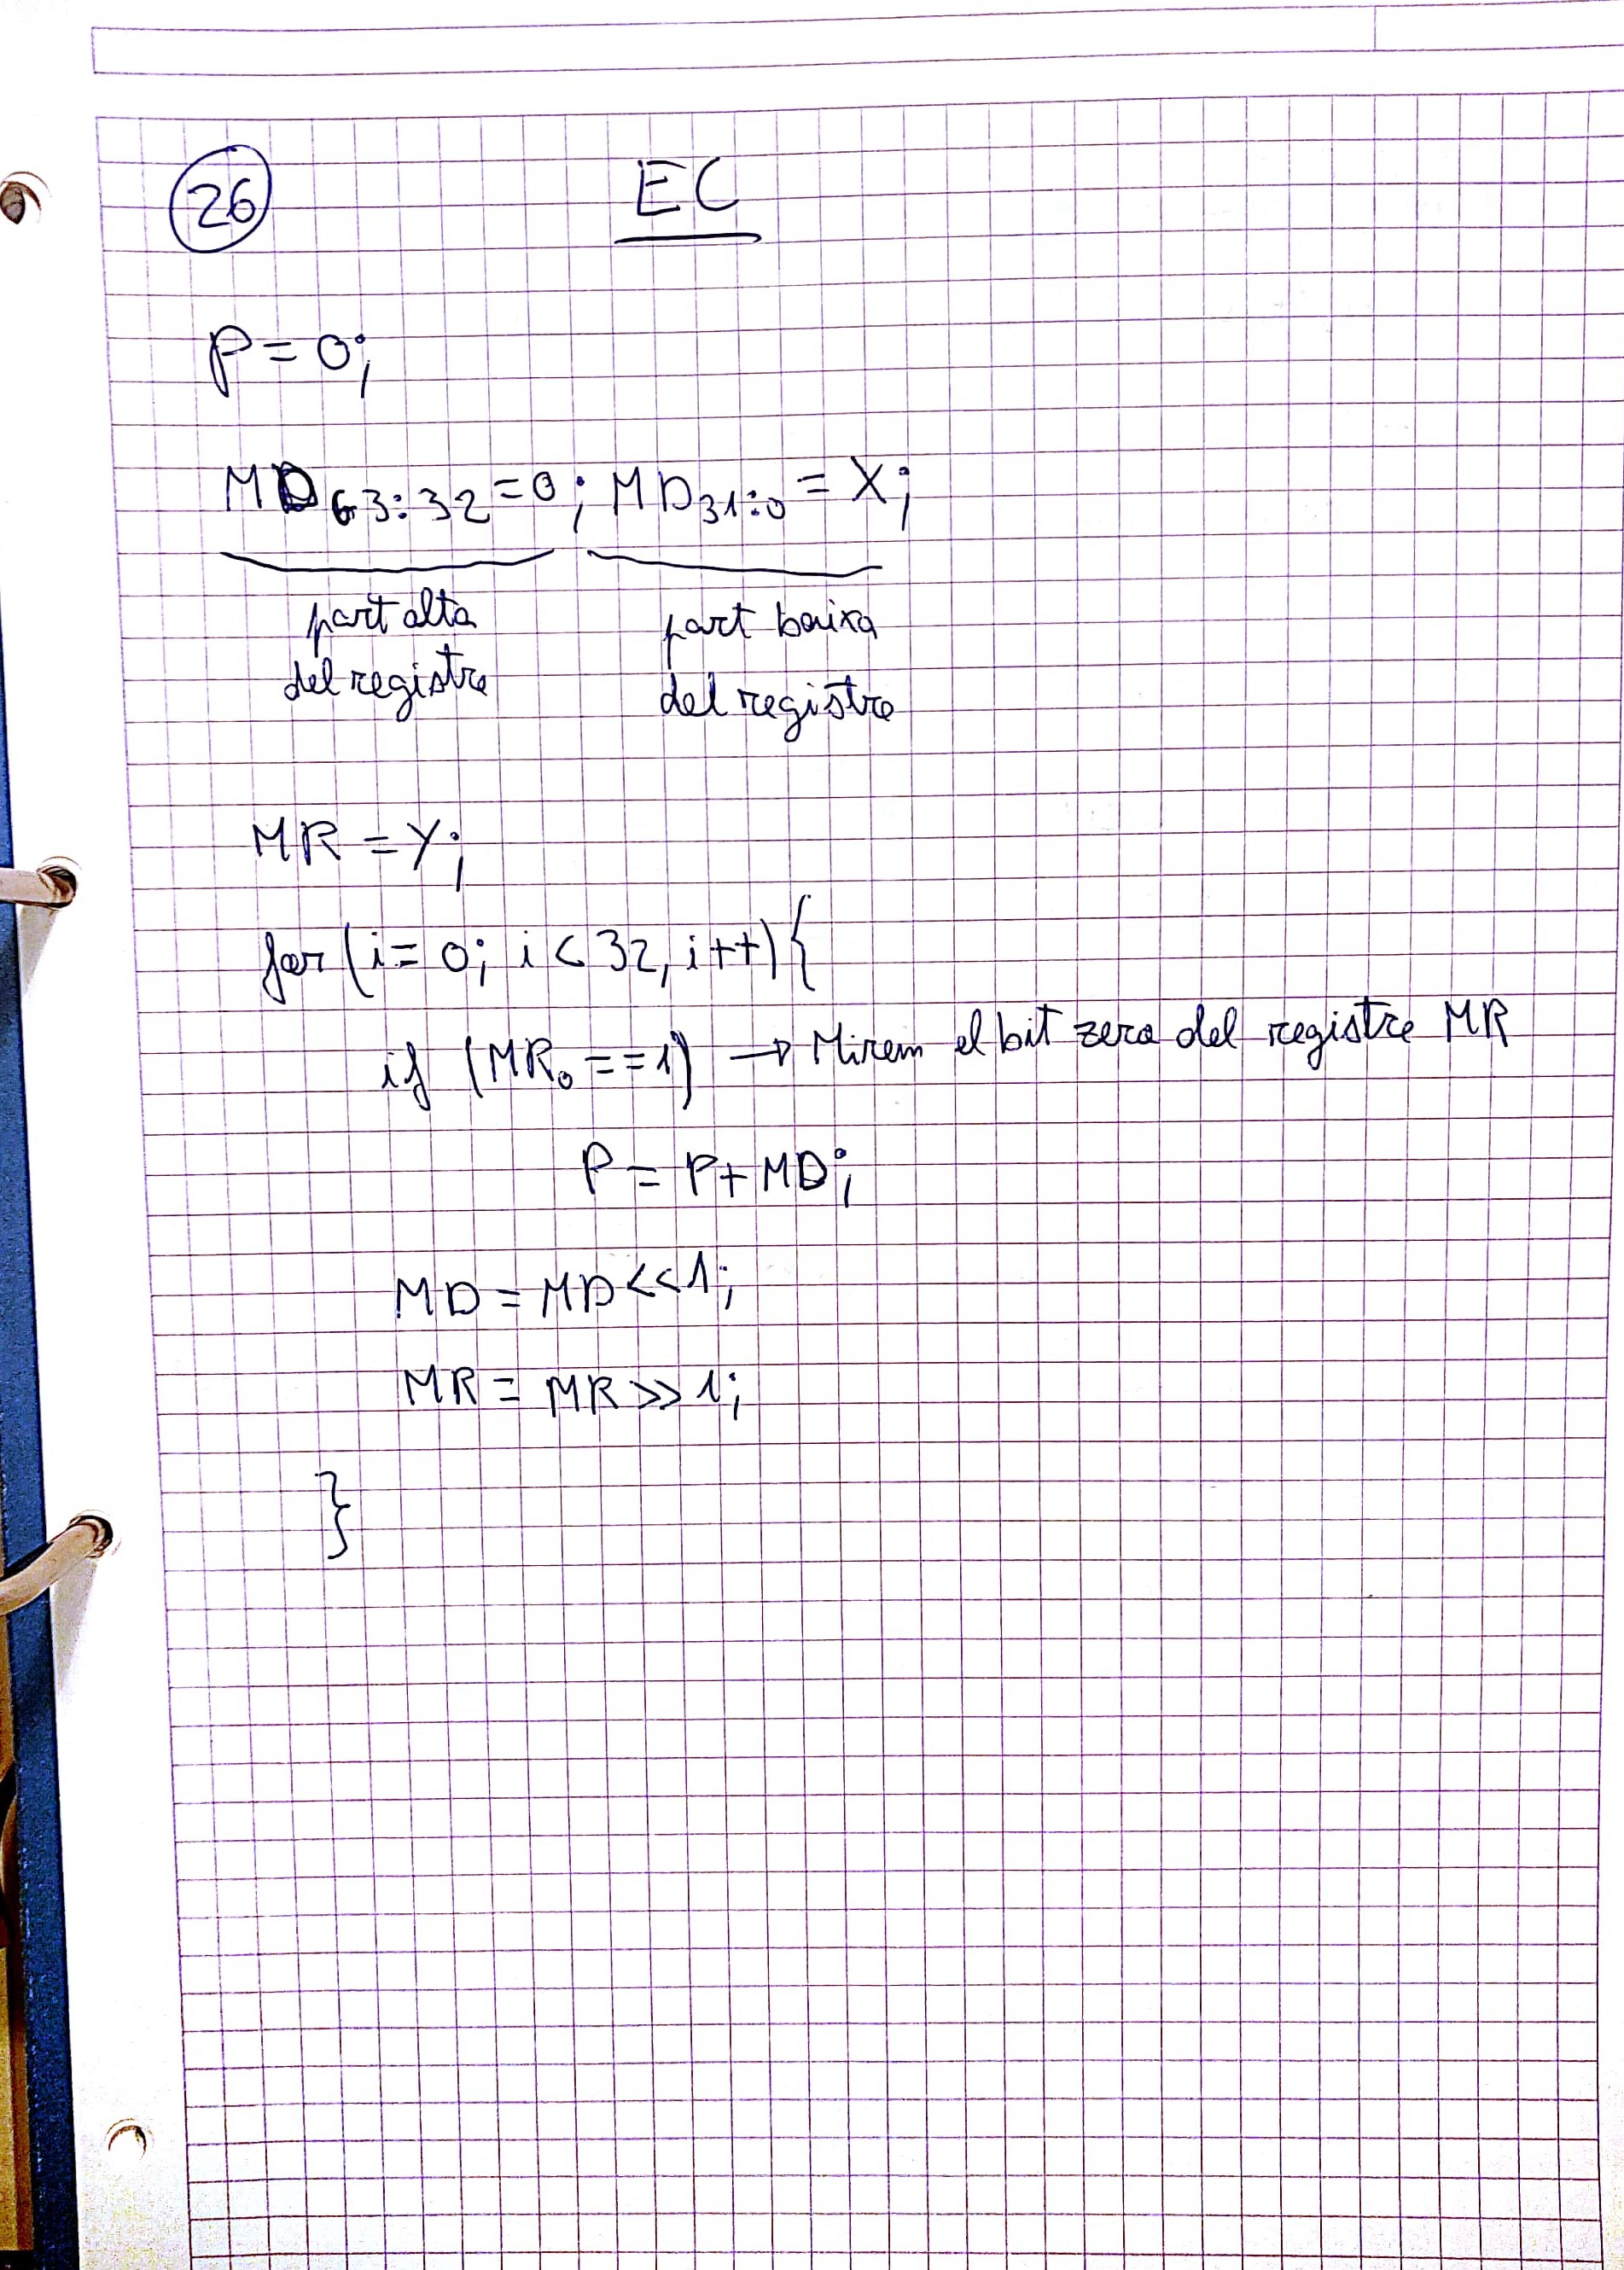 26
EC
P = 0;
MD63:32 = 0; MD31:0 = X;
part alta
del registre
part baixa
del registre
MR = Y;
for (i = 0; i < 32, i++) {
if (MR0 == 1) → Mirem el bit zero del registre MR
P = P + MD;
MD = MD << 1;
MR = MR >> 1;
}